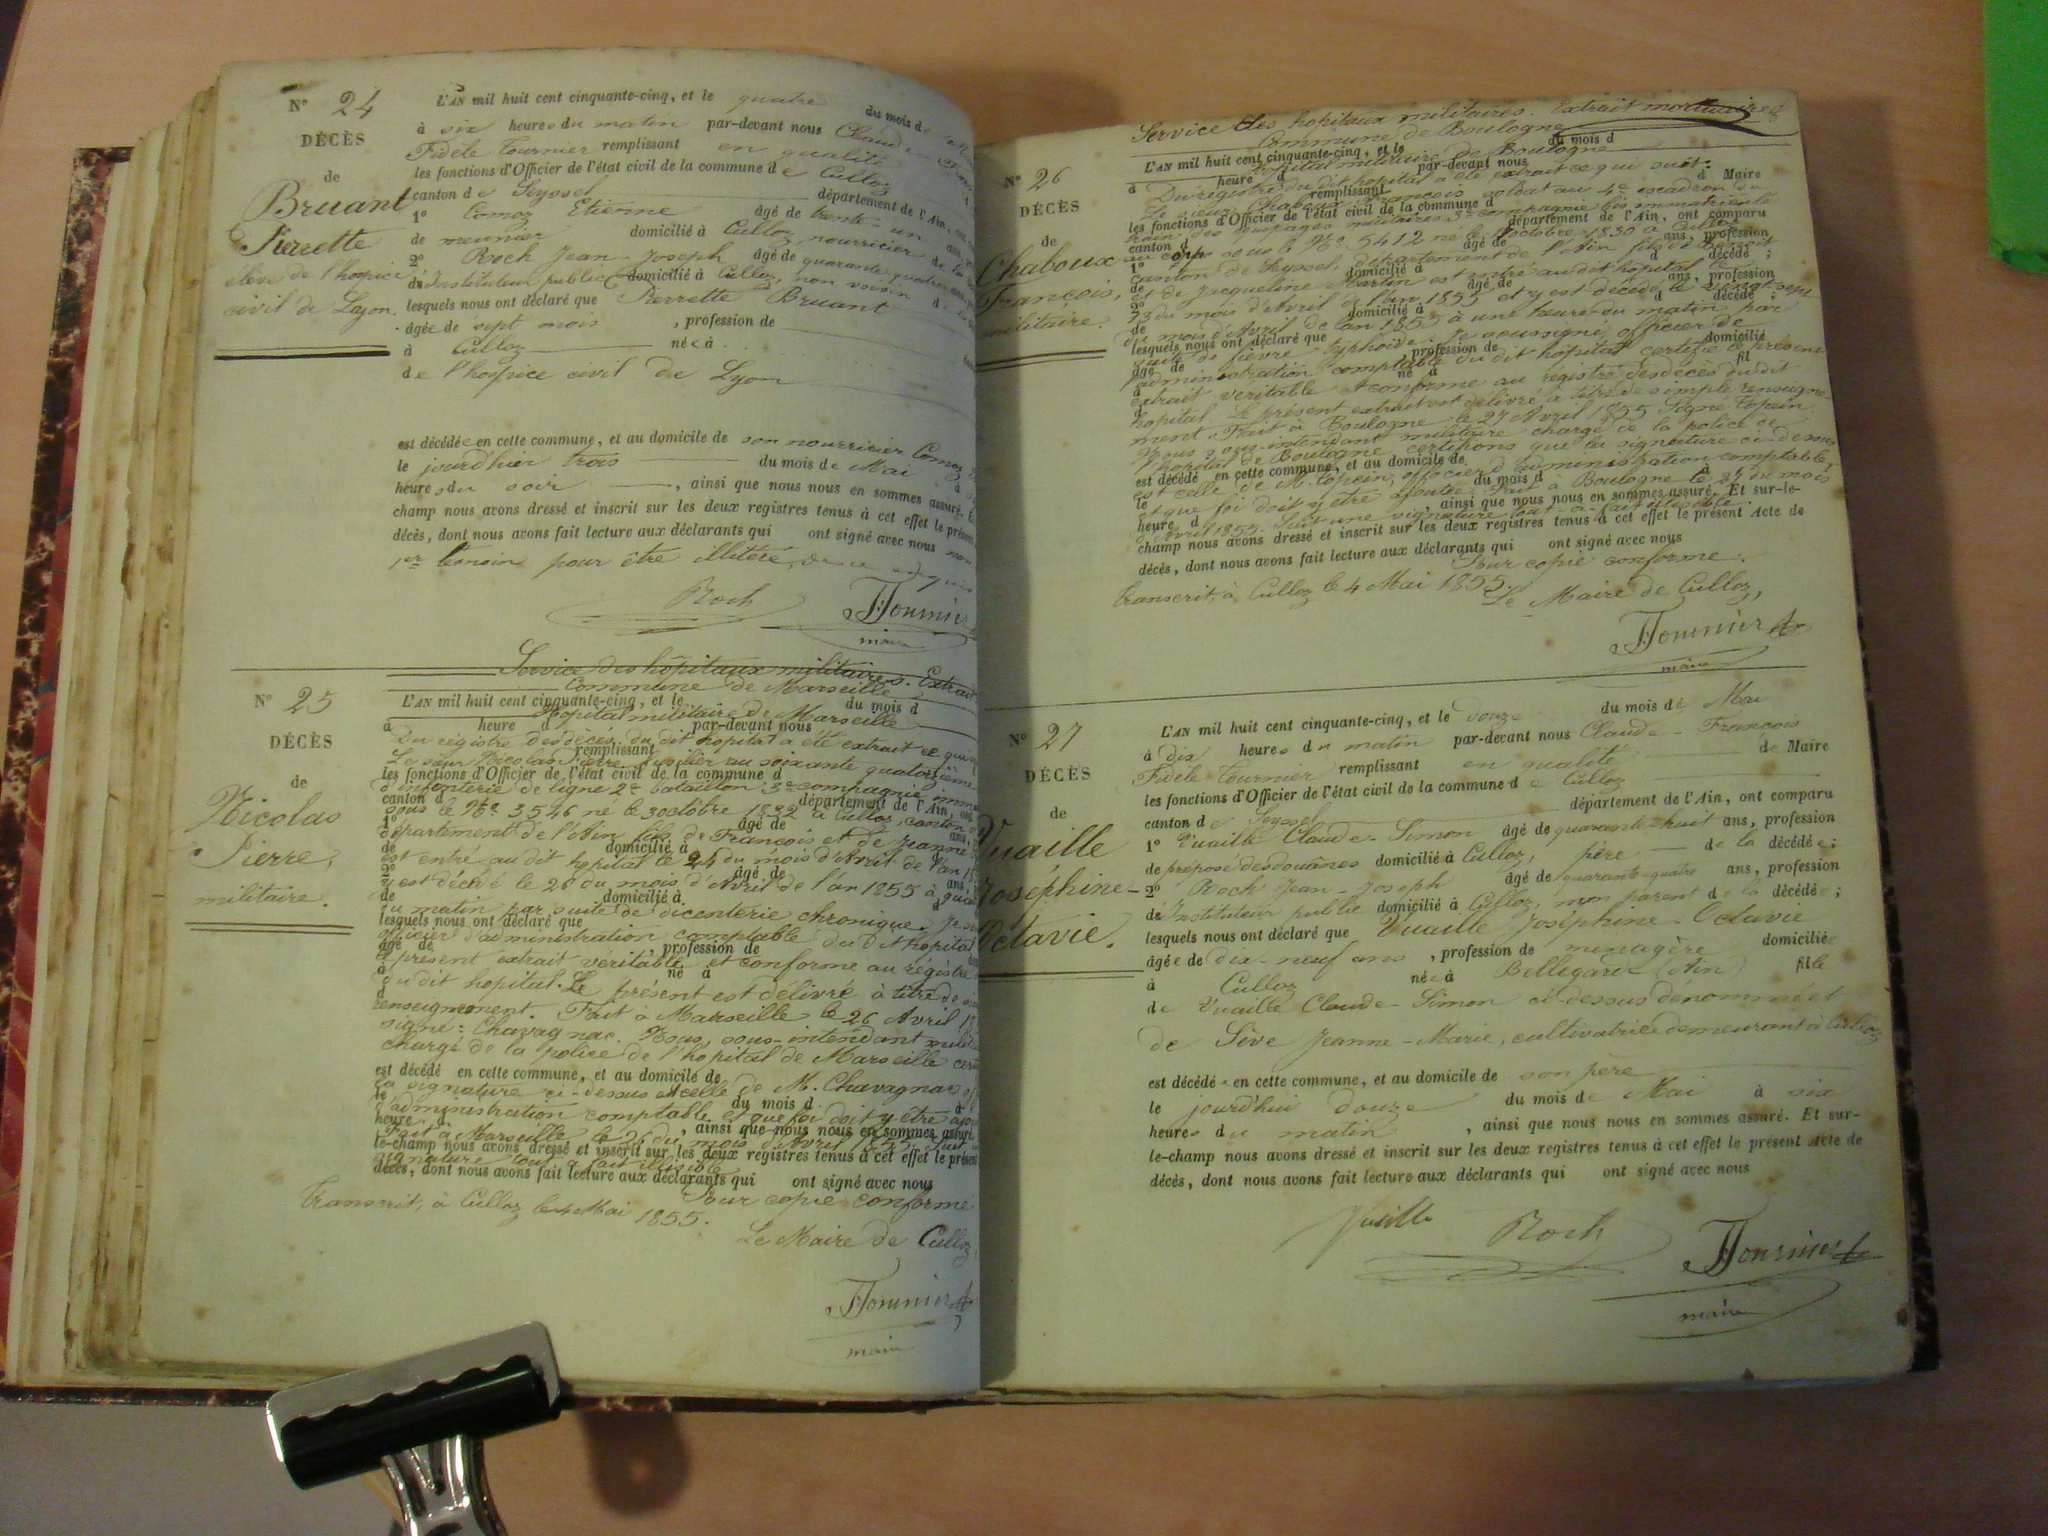 N° 24
DÉCÈS
de
Bruant
Pierrette
élève de l'hospice
civil de Lyon.
L'AN mil huit cent cinquante-cinq, et le quatre du mois de
à six heures du matin par-devant nous Claude
Fidèle Tournier remplissant en qualité
les fonctions d'Officier de l'état civil de la commune de Culloz
canton de Seyssel département de l'Ain,
1° Comoz Etienne âgé de trente-un
de meunier domicilié à Culloz, nourricier de la
2° Roch Jean-Joseph âgé de quarante quatre
de Instituteur public domicilié à Culloz, non voisin d
lesquels nous ont déclaré que Pierrette Bruant
âgée de sept mois , profession de
à Culloz née à
de l'hospice civil de Lyon
est décédée en cette commune, et au domicile de son nourricier Comoz
le jourd'hier trois du mois de Mai à
heures du soir , ainsi que nous nous en sommes assuré.
champ nous avons dressé et inscrit sur les deux registres tenus à cet effet le présent
décès, dont nous avons fait lecture aux déclarants qui ont signé avec nous non
1er témoin pour être illitéré, de ce enquis
Roch Tournier
maire
N° 25
DÉCÈS
de
Nicolas
Pierre,
militaire.
Service des hôpitaux militaires. Extrait
Commune de Marseille
L'AN mil huit cent cinquante-cinq, et le du mois d
Hopital militaire de Marseille
à heure d par-devant nous
Du régistre des décès du dit hopital a été extrait ce qui
remplissant
Le sieur Nicolas Pierre fusilier au soixante quatorzième
les fonctions d'Officier de l'état civil de la commune d
d'infenterie de ligne 2e bataillon 3e compagnie
canton d département de l'Ain,
sous le No 3546 né le 3 octobre 1832 à Culloz, canton
1° âgé de ans,
département de l'Ain fils de François et de Jeanne
de domicilié à
est entré au dit hopital le 24 du mois d'Avril de l'an
2° âgé de ans,
y est décédé le 26 du mois d'Avril de l'an 1855 à
de domicilié à
du matin par suite de dicenterie chronique. Je
lesquels nous ont déclaré que
officier d'administration comptable du dit hopital
âgé de , profession de
le présent extrait veritable et conforme au régistre
à né à
du dit hopital. Le présent est délivré à titre de
d
renseignement. Fait à Marseille le 26 Avril
signé: Chavagnac. Nous, sous-intendant
chargé de la police de l'hopital de Marseille
est décédé en cette commune, et au domicile de
la signature ci-dessus est celle de M. Chavagnac
le du mois d à
d'administration comptable et que foi doit y être
heure d , ainsi que nous nous en sommes assuré.
Fait à Marseille le 26 du mois d'Avril
le-champ nous avons dressé et inscrit sur les deux registres tenus à cet effet le présent
signature tout à fait illisible
décès, dont nous avons fait lecture aux déclarants qui ont signé avec nous
Pour copie conforme
Transcrit, à Culloz le 4 Mai 1855.
Le Maire de Culloz,
Tournier
maire
N° 26
DÉCÈS
de
Chaboux
François,
militaire.
Service des hopitaux militaires. Extrait mortuaire
Commune de Boulogne
L'AN mil huit cent cinquante-cinq, et le du mois d
Hopital militaire de Boulogne
à heure d par-devant nous
Du régistre du dit hopital a été extrait ce qui suit:
remplissant d Maire
Le sieur Chaboux François soldat au 4e escadron du
les fonctions d'Officier de l'état civil de la commune d
train des équipages militaires
canton d département de l'Ain, ont comparu
au corps sous le No 5412 né le octobre 1830 à Culloz
1° âgé de ans, profession
canton de Seyssel, département de l'Ain fils de Benoit
de domicilié à d décédé ;
et de Jacqueline Martin est entré au dit hopital le
2° âgé de ans, profession
13 du mois d'Avril de l'an 1855 et y est décédé le vingt sept
de domicilié à d décédé ;
du mois d'Avril de l'an 1855 à une heure du matin par
lesquels nous ont déclaré que
suite de fièvre typhoïde. Je soussigné officier de
âgé de , profession de domicilié
l'administration comptable du dit hopital certifie le présent
à né à fil
extrait veritable et conforme au régistre des décès du dit
d
hopital. Le présent extrait est délivré à titre de simple renseigne-
ment. Fait à Boulogne le 27 Avril 1855 Signé Topein.
Nous sous-intendant militaire chargé de la police de
l'hopital de Boulogne certifions que la signature ci-dessus
est décédé en cette commune, et au domicile de
est celle de M. Topein, officier d'administration comptable,
le du mois d à
et que foi doit y être ajoutée. Fait à Boulogne le 27 du mois
heure d , ainsi que nous nous en sommes assuré. Et sur-le-
d'Avril 1855. Suit une signature tout-à-fait illisible
champ nous avons dressé et inscrit sur les deux registres tenus à cet effet le présent Acte de
décès, dont nous avons fait lecture aux déclarants qui ont signé avec nous
Pour copie conforme.
Transcrit, à Culloz le 4 Mai 1855.
Le Maire de Culloz,
Tournier
maire
N° 27
DÉCÈS
de
Vuaille
Joséphine-
Octavie.
L'AN mil huit cent cinquante-cinq, et le douze du mois de Mai
à dix heures du matin par-devant nous Claude-François
Fidèle Tournier remplissant en qualité de Maire
les fonctions d'Officier de l'état civil de la commune de Culloz
canton de Seyssel département de l'Ain, ont comparu
1° Vuaille Claude-Simon âgé de quarante huit ans, profession
de préposé des douanes domicilié à Culloz, père de la décédée ;
2° Roch Jean-Joseph âgé de quarante-quatre ans, profession
de Instituteur public domicilié à Culloz, non parent de la décédée ;
lesquels nous ont déclaré que Vuaille Joséphine-Octavie
âgée de dix-neuf ans , profession de ménagère domiciliée
à Culloz née à Bellegarde (Ain) fille
de Vuaille Claude-Simon ci-dessus dénommé et
de Sève Jeanne-Marie, cultivatrice demeurant à Culloz
est décédée en cette commune, et au domicile de son père
le jourd'hui douze du mois de Mai à six
heures du matin , ainsi que nous nous en sommes assuré. Et sur-
le-champ nous avons dressé et inscrit sur les deux registres tenus à cet effet le présent Acte de
décès, dont nous avons fait lecture aux déclarants qui ont signé avec nous
Vuaille Roch Tournier
maire